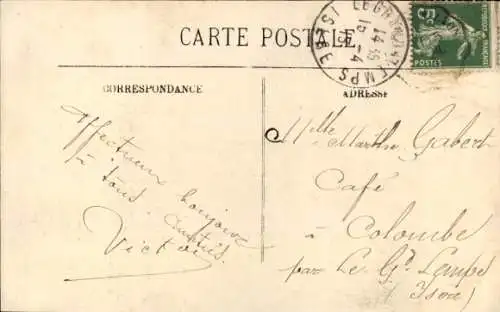 CARTE POSTALE
LE GRAND-LEMPS
14 35
15 -4
ISERE
5c
POSTES
CORRESPONDANCE
ADRESSE
affectueux bonjour
à tous. Amitiés.
Victor
Mlle Marthe Gabert
Café
à Colombe
par Le Gd Lemps
(Isère)